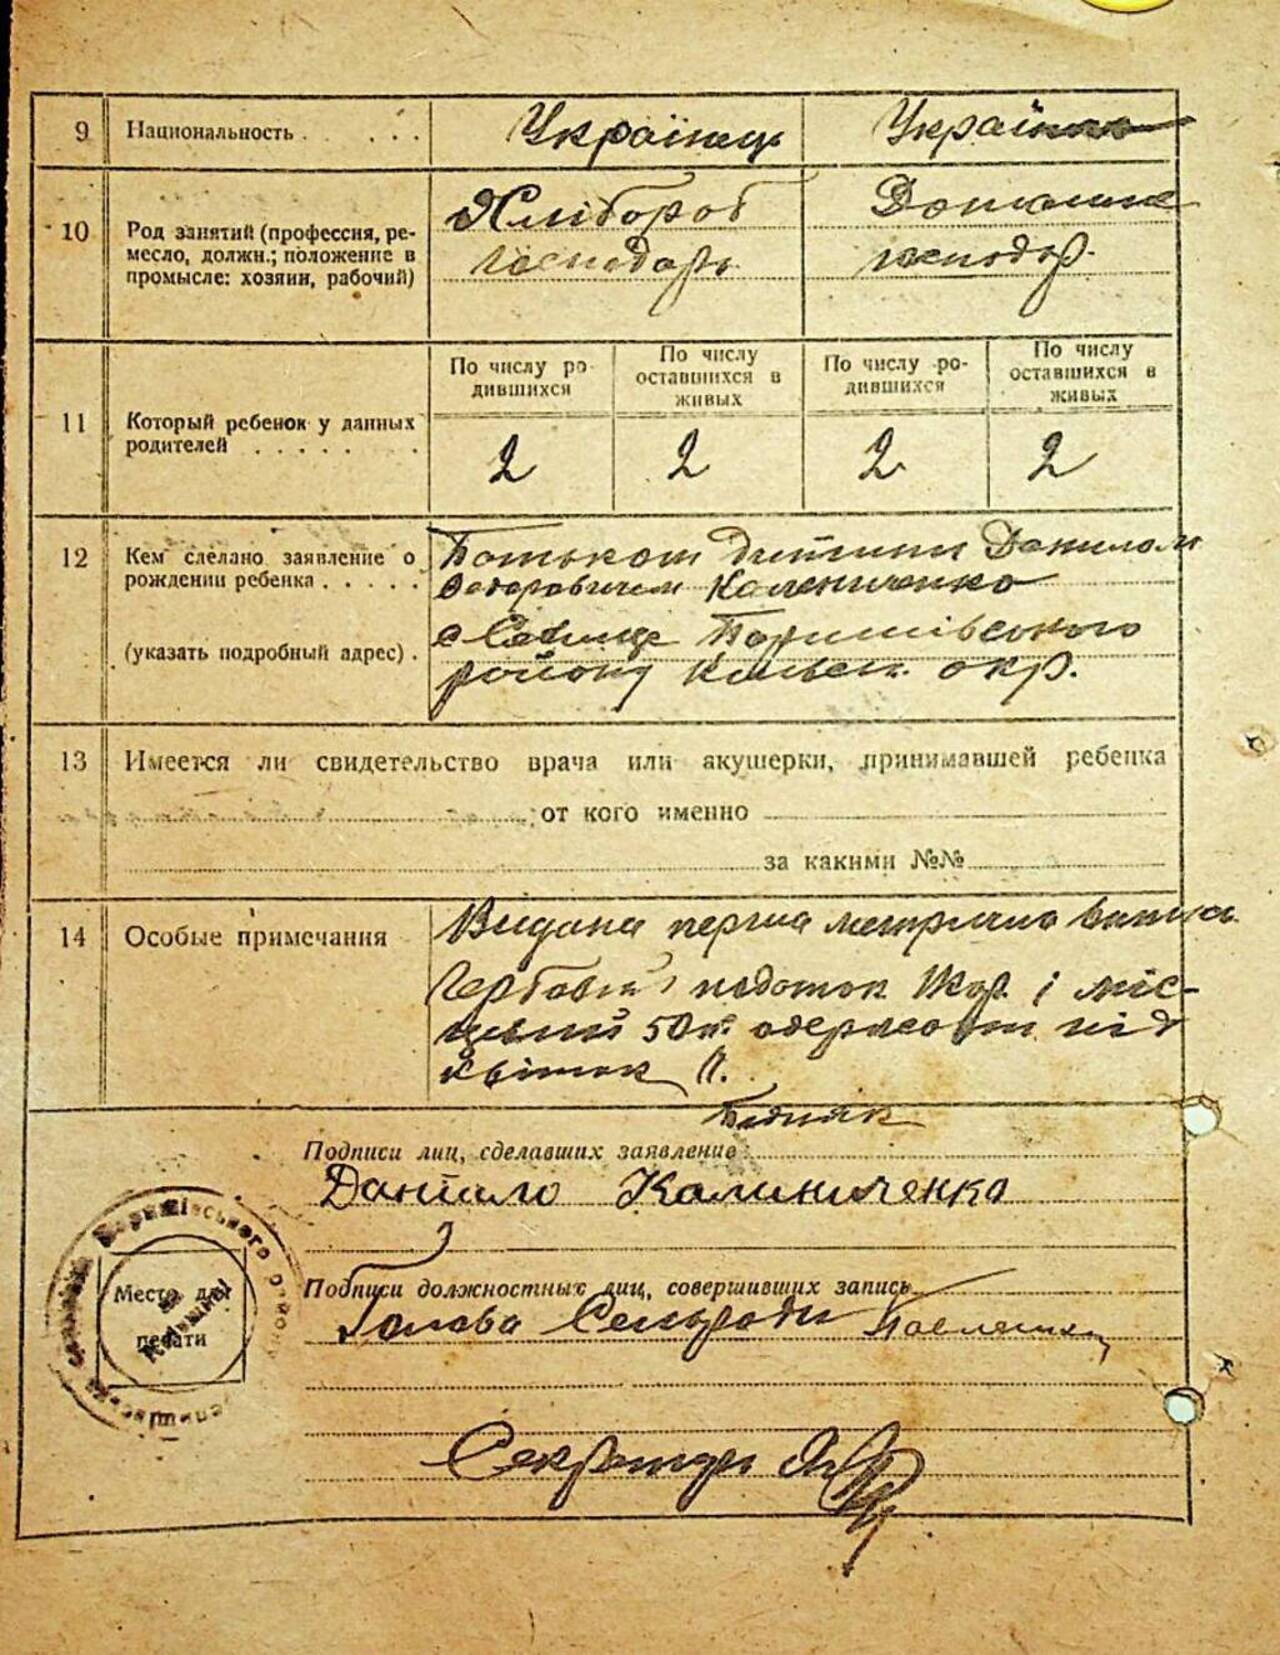 9 Национальность . . . . Українець Українка
10 Род занятий (профессия, ре-
месло, должн.; положение в
промысле: хозяин, рабочий)
Хлібороб
господарь
Домашне
господар.
11 Который ребенок у данных
родителей . . . . . .
По числу ро-
дившихся
По числу
оставшихся в
живых
По числу ро-
дившихся
По числу
оставшихся в
живых
2 2 2 2
12 Кем сделано заявление о
рождении ребенка . . . . .
(указать подробный адрес) .
Батьком дитини Данилом
Федоровичем Калениченко
с Баришівського
району Київськ. окр.
13 Имеется ли свидетельство врача или акушерки, принимавшей ребенка
от кого именно
за какими №№
14 Особые примечания
Видана перша метрична
Гербовий і міс-
цевий 50к. під
квіток
Бідняк
Подписи лиц, сделавших заявление
Данило Калиниченко
Подписи должностных лиц, совершивших запись
Голова Сельради
Секретарь
Место для
печати